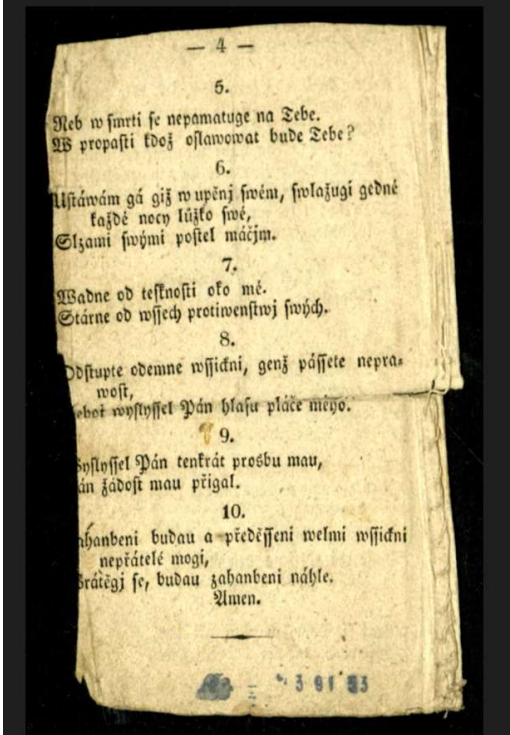 — 4 —
5.
Neb w smrti se nepamatuge na Tebe.
W propasti kdož oslawowat bude Tebe?
6.
Ustáwám gá giž w upěnj swém, swlažugi gedné
každé nocy lůžko swé,
Slzami swými postel máčjm.
7.
Wadne od teskností oko mé.
Stárne od wssech protiwenstwj swých.
8.
Odstupte odemne wssickni, genž pássete nepra-
wost,
neboť wyslyssel Pán hlasu pláče mého.
9.
yslyssel Pán tenkrát prosbu mau,
án žádost mau přigal.
10.
ahanbeni budau a předěsseni welmi wssickni
nepřátelé mogi,
Wrátěgj se, budau zahanbeni náhle.
Amen.
3 91 53